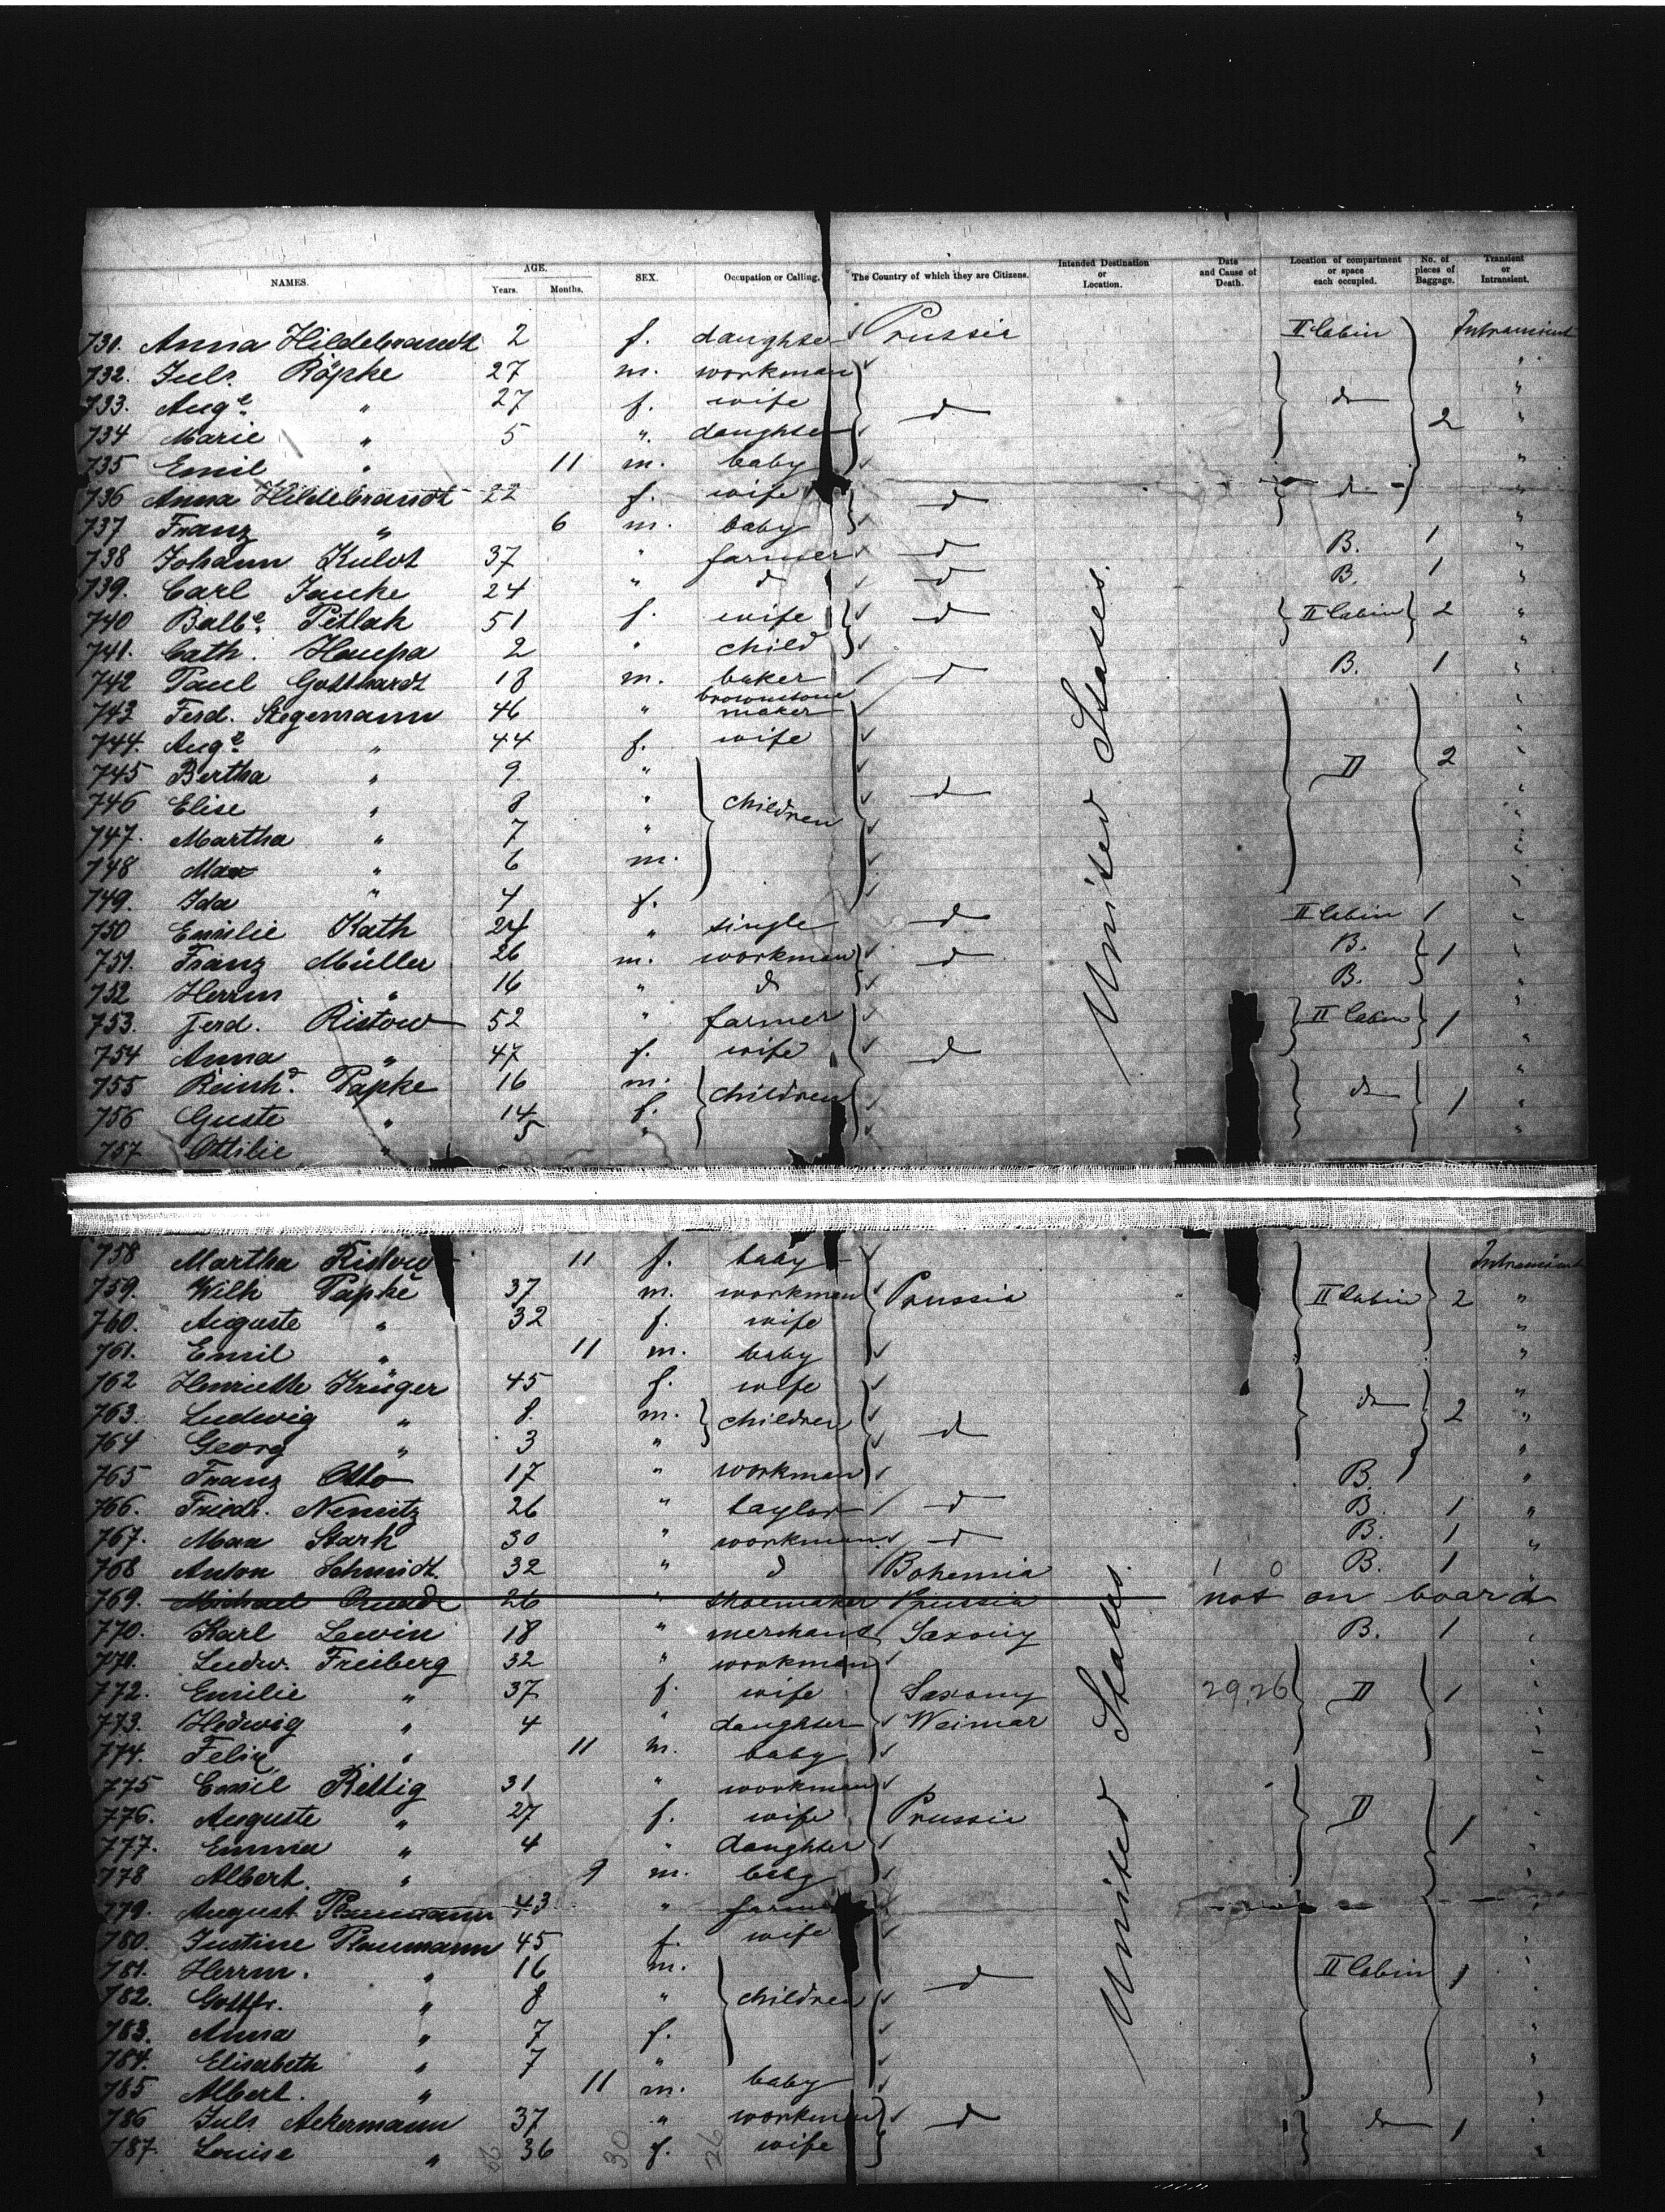 NAMES. AGE. Years. Months. SEX. Occupation or Calling. The Country of which they are Citizens. Intended Destination or Location. Date and Cause of Death. Location of compartment or space each occupied. No. of pieces of Baggage. Transient or Intransient.
731. Anna Hildebrandt 2 f. daughter Prussia II Cabin Intransient
732. Juls. Röpke 27 m. workman "
733. Auge. " 27 f. wife d do "
734 Marie " 5 ". daughter 2 "
735 Emil " 11 m. baby "
736 Anna Hildebrandt 22 f. wife d do "
737 Franz " 6 m. baby "
738 Johann Kulot 37 " farmer d B. 1 "
739. Carl Jancke 24 " d d B. 1 "
740 Balbe. Petlak 51 f. wife d II Cabin 2 "
741. Cath. Haupa 2 " child "
742 Paul Gotthardt 18 m. baker d B. 1 "
743 Ferd. Stegemann 46 " brownstone maker "
744. Auge. " 44 f. wife "
745 Bertha " 9. " D 2 "
746 Elise " 8 " children d "
747. Martha " 7 " "
748 Max " 6 m. "
749. Ida " 4 f. "
750 Emilie Kath 24 " single d II Cabin 1 "
751. Franz Müller 26 m. workman d B. 1 "
752 Herrm " 16 " d B. "
753. Ferd. Ristow 52 " farmer II Cabin 1 "
754 Anna " 47 f. wife d "
755 Reinhd. Papke 16 m. children do "
756 Guste " 14 f. 1 "
757 Ottilie " 5 " "
758 Martha Ristow 11 f. baby Intransient
759. Wilh Papke 37 m. workman Prussia II Cabin 2 "
760. Auguste " 32 f. wife "
761. Emil " 11 m. baby "
762 Henriette Krüger 45 f. wife "
763. Ludwig " 8. m. children d do 2 "
764 Georg " 3 " "
765 Franz Otto 17 " workman B. "
766. Friedr. Nemitz 26 " taylor d B. 1 "
767. Max Stark 30 " workman d B. 1 "
768 Anton Schmidt. 32 " d Bohemia 1 0 B. 1 "
769. Michael 26 " shoemaker Prussia not on board
770. Karl Lewin 18 " merchant Saxony B. 1 "
771. Ludw. Freiberg 32 " workman "
772. Emilie " 37 f. wife Saxony 29,26 D 1 "
773. Hedwig " 4 " daughter Weimar "
774. Felix " 11 m. baby "
775 Emil Rettig 31 " workman "
776. Auguste " 27 f. wife Prussia D "
777. Emma " 4 " daughter 1 "
778 Albert. " 9 m. baby "
779. August Plaumann 43 " farmer
780. Justine Plaumann 45 f. wife "
781. Herrm. " 16 m. d II Cabin 1 "
782. Gottfr. " 8 " children "
783. Anna " 7 f. "
784. Elisabeth " 7 " "
785 Albert. " 11 m. baby "
786 Juls. Ackermann 37 " workman d do 1 "
787. Louise " 36 f. wife "
United States.
United States.
30 26